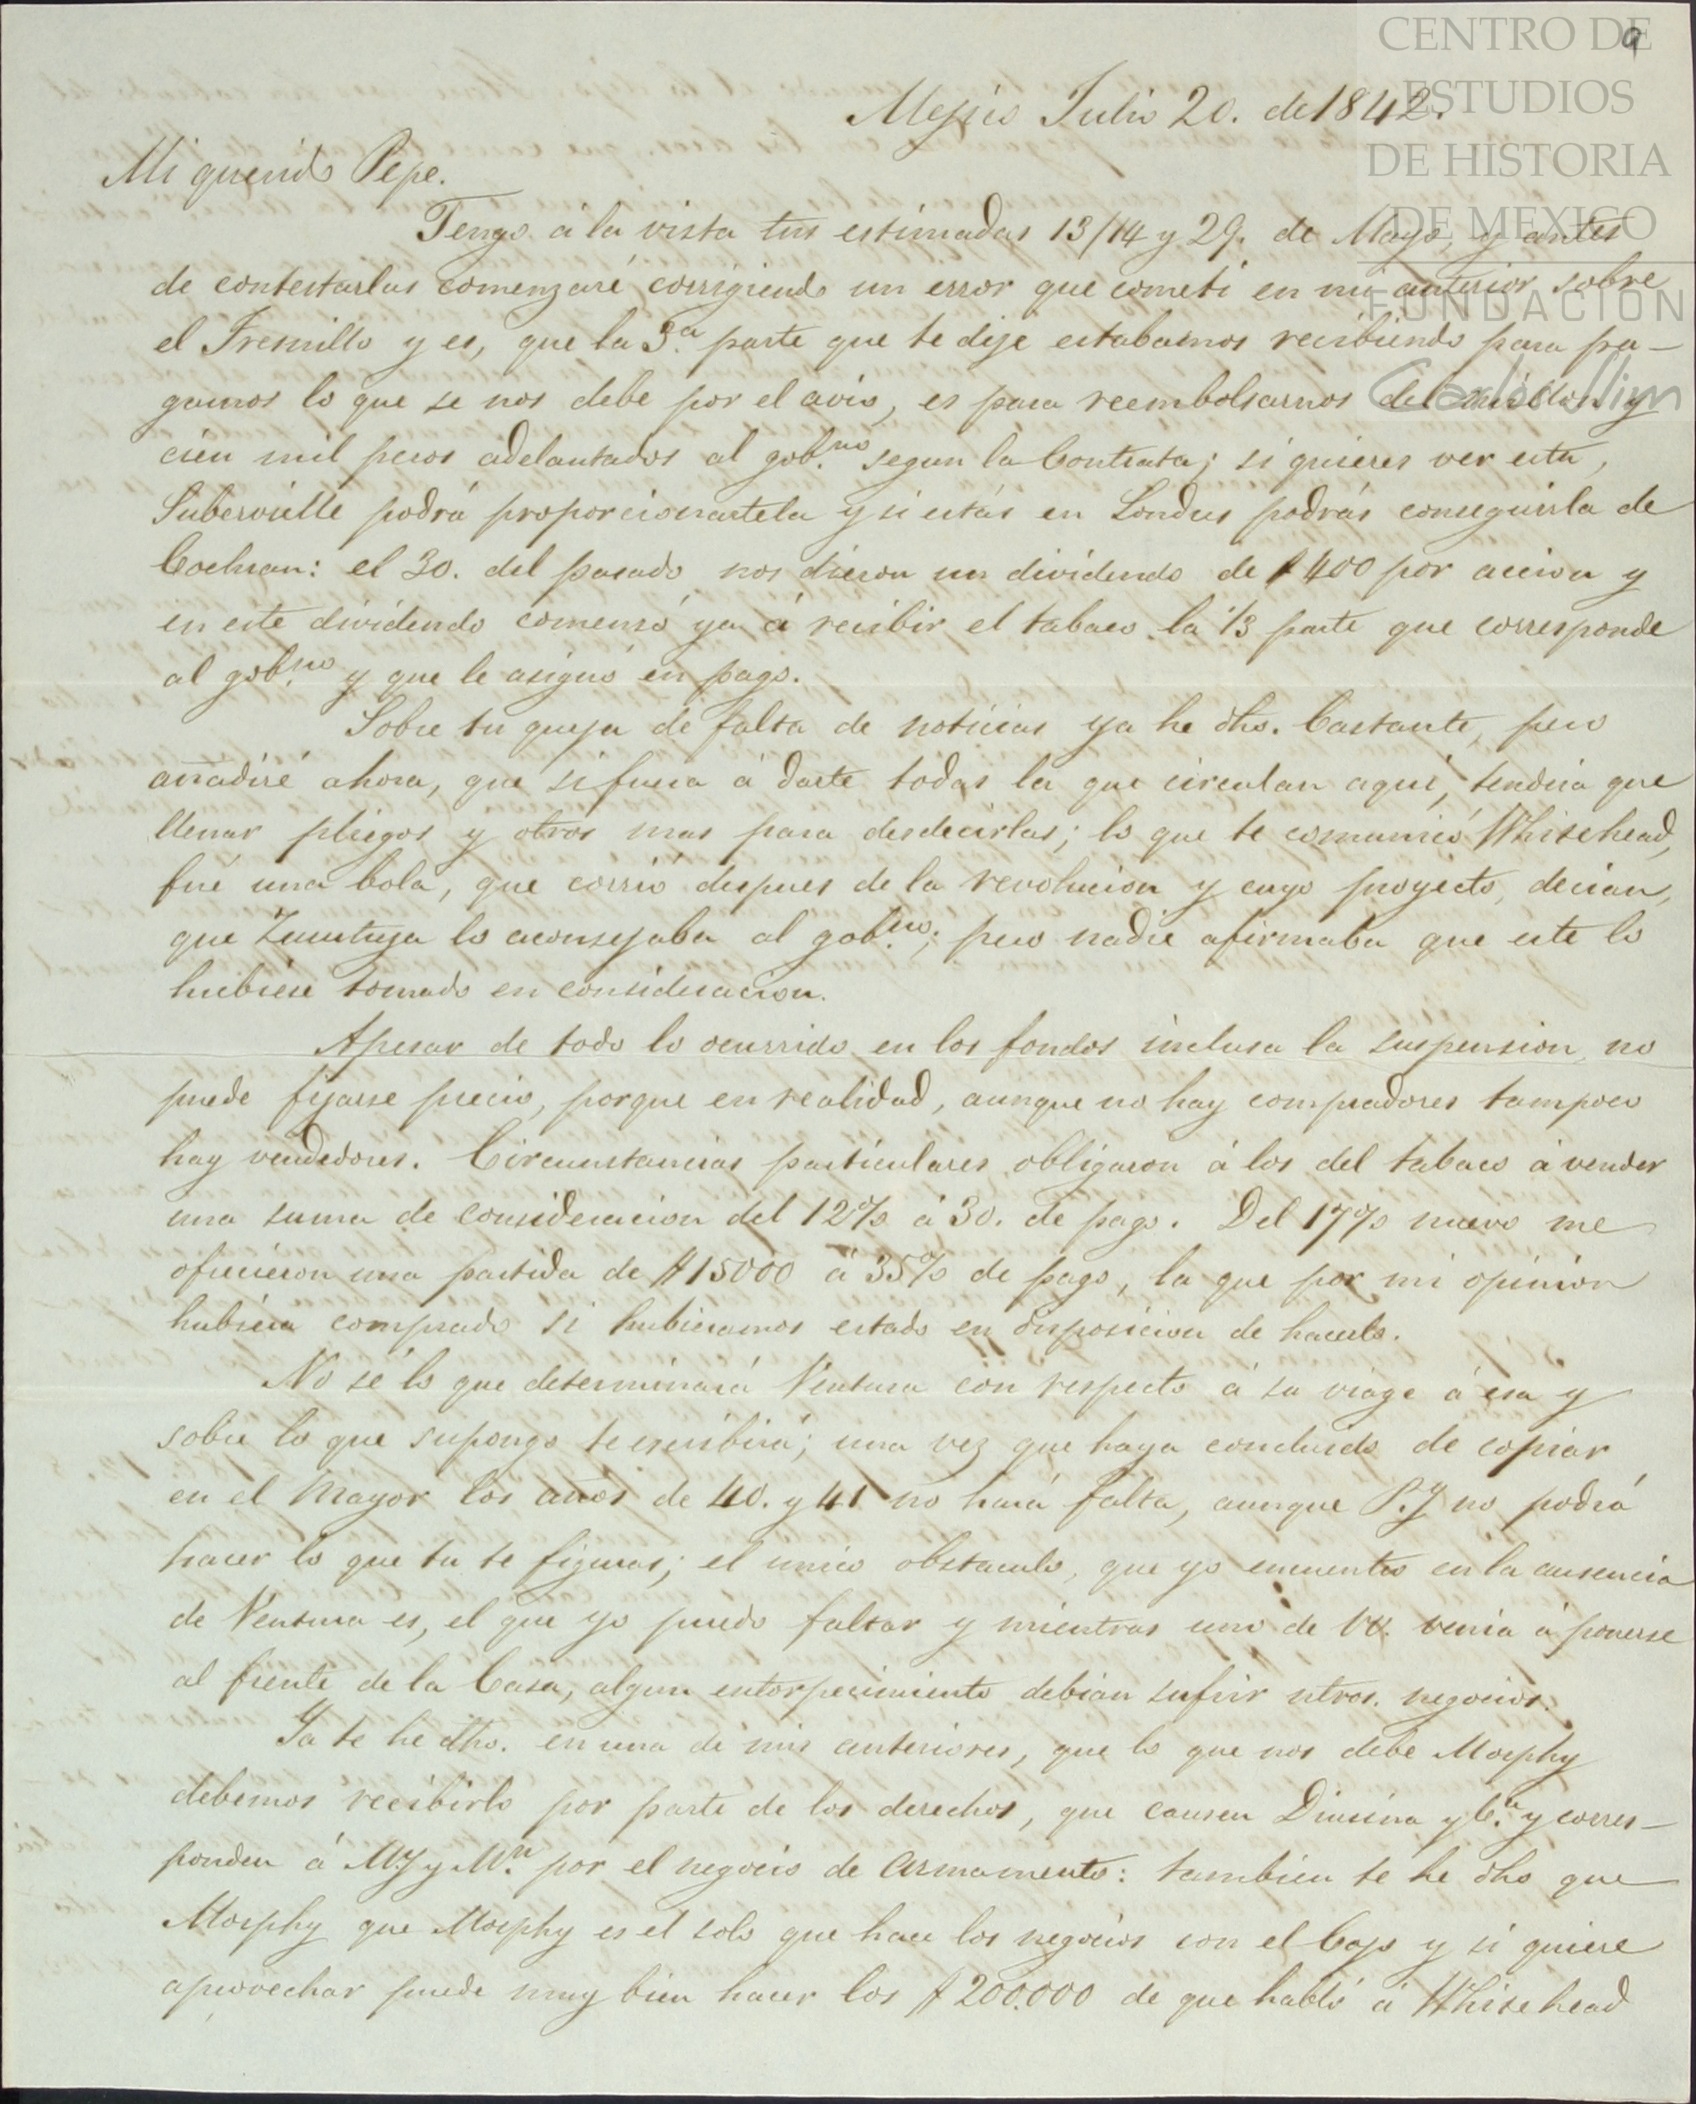 CENTRO DE
ESTUDIOS
DE HISTORIA
DE MEXICO
FUNDACION
Carlos Slim
9
Mejico Julio 20. de 1842.
Mi querido Pepe.
Tengo á la vista tus estimadas 13/14 y 29. de Mayo, y antes
de contestarlas comenzaré corrigiendo un error que cometí en mi anterior sobre
el Fresnillo y es, que la 3.a parte que te dije estabamos recibiendo para pa-
garnos lo que se nos debe por el avio, es para reembolsarnos del millon y
cien mil pesos adelantados al gob.no segun la Contrata; si quieres ver esta,
Subervielle podrá proporcionartela y si estás en Londres podrás conseguirla de
Cochran: el 30. del pasado nos dieron un dividendo de $400 por accion y
en este dividendo comenzó ya á recibir el tabaco la 1/3 parte que corresponde
al gob.no y que le asignó en pago.
Sobre tu queja de falta de noticias ya he dho. bastante, pero
añadiré ahora, que si fuera á darte todas la que circulan aquí, tendria que
llenar pliegos y otros mas para desdecirlas; lo que te comunicó Whitehead,
fué una bola, que corrió despues de la revolucion y cuyo proyecto, decian,
que lo aconsejaba al gob.no; pero nadie afirmaba que este lo
hubiese tomado en consideracion.
Apesar de todo lo ocurrido en los fondos inclusa la suspension, no
puede fijarse precio, porque en realidad, aunque no hay compradores tampoco
hay vendedores. Circunstancias particulares obligaron á los del tabaco á vender
una suma de consideracion del 12% á 30. de pago. Del 17% nuevo me
ofrecieron una partida de $15000 á 35% de pago, la que por mi opinion
hubiera comprado si hubieramos estado en disposicion de hacerlo.
No sé lo que determinará Ventura con respecto á su viage á esa y
sobre lo que supongo te escribirá; una vez que haya concluido de copiar
en el Mayor los años de 40. y 41 no hará falta, aunque P.J no podrá
hacer lo que tu te figuras; el unico obstaculo, que yo encuentro en la ausencia
de Ventura es, el que yo puedo faltar y mientras uno de VV. venia á ponerse
al frente de la Casa, algun entorpecimiento debian sufrir ntros. negocios.
Ya te he dho. en una de mis anteriores, que lo que nos debe Morphy
debemos recibirlo por parte de los derechos, que causen y C.a y corres-
ponden á MJ y M.n por el negocio de Armamento: tambien te he dho que
Morphy que Morphy es el solo que hace los negocios con el Cojo y si quiere
aprovechar puede muy bien hacer los $200.000 de que habló á Whitehead